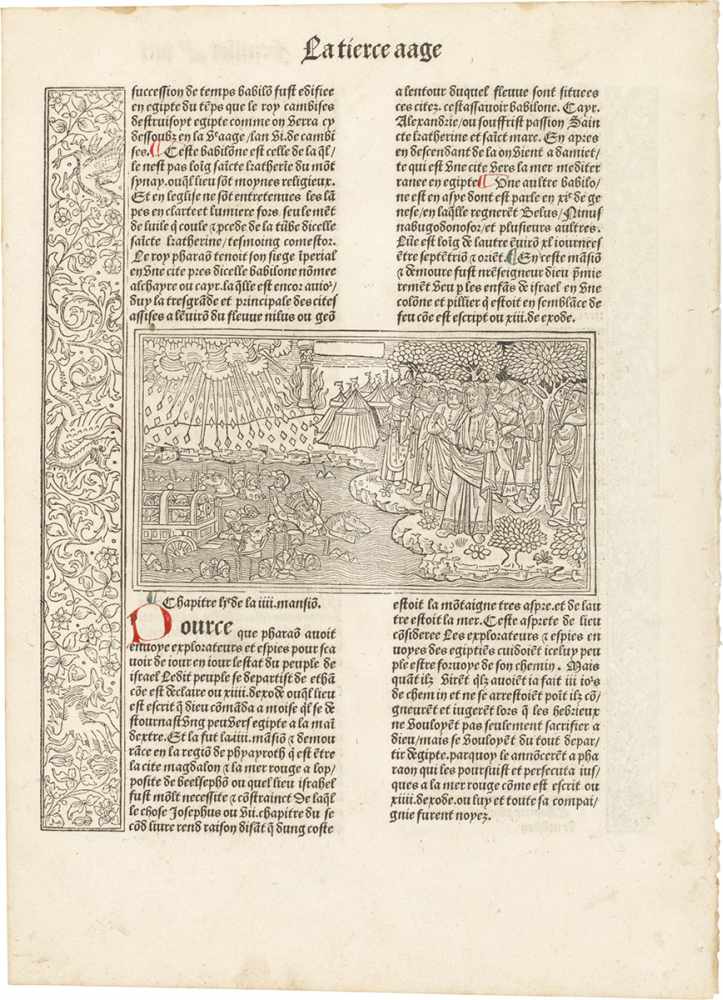 La tierce aage
succession de temps babilõ fust edifiee
en egipte du tẽps que le roy cambises
destruisoyt egipte comme on verra cy
dessoubz en la Ve aage/lan Vi.de cambi
ses. ¶ Ceste babilõne est celle de la q̃l/
le nest pas loĩg saĩcte katherĩe du mõt
synay.ouq̃l lieu sõt moynes religieux.
Et en leglise ne sõt entretenues les lã
pes en clarte et lumiere fors seulemẽt
de luile q̃ coule ⁊ pcede de la tũbe dicelle
saĩcte katherine/tesmoing comestor.
Le roy pharaõ tenoit son siege ĩperial
en Vne cite pres dicelle babilone nõmee
alchayre ou cayr.la q̃lle est encor auio²/
duy la tresgrãde et principale des cites
assises a lẽuirõ du fleuue nilus ou geõ
a lentour duquel fleuue sont situees
ces citez. cestassauoir babilone. Cayr.
Alexandrie/ou souffrist passion Sain
cte katherine et saĩct marc. En apres
en descendant de la on vient a damiet/
te/qui est Vne cite Vers la mer mediter
ranee en egipte ¶ Vne aultre babilo/
ne est en asye dont est parle en xie de ge
nese/en laq̃lle regnerẽt Belus/Ninus
nabugodonosor/et plusieurs aultres.
Lũe est loĩg de lautre ẽuirõ xl iournees
ẽtre septẽtriõ ⁊ oriẽt. ¶ En ceste mãsiõ
⁊ demoure fust nr̃eseigneur dieu p̃mie
remẽt Veu p les enfãs de israel en Vne
colõne et pillier q̃ estoit en semblãce de
feu cõe est escript ou xiii.de exode.
Chapitre lye de la iiii.mansiõ.
Pource que pharaõ auoit
enuoye explorateurs et espies pour sca
uoir de iour en iour lestat du peuple de
israel Ledit peuple se departist de ethã
cõe est declaire ou xiiii.dexode ouq̃l lieu
est escrit q̃ dieu cõmãda a moise q̃l se de
stournast Vng peu Vers egipte a la maĩ
dextre.Et la fut la iiii.mãsiõ ⁊ demou
rãce en la regiõ de phyayroth q̃ est ẽtre
la cite magdalon ⁊ la mer rouge a lop/
posite de beelsephõ ou quel lieu israhel
fust mõlt necessite ⁊ cõstrainct De laq̃l
le chose Josephus ou Vii.chapitre du se
cõd liure rend raison disãt q̃ dung coste
estoit la mõtaigne tres aspre.et de lau
tre estoit la mer.Ceste asprete de lieu
cõsideree Les explorateurs ⁊ espies en
uoyes des egiptiẽs cuidoiẽt iceluy peu
ple estre foruoye de son chemin. Mais
quãt ilz Virẽt q̃lz auoiẽt ia fait iii io²s
de chemin et ne se arrestoiẽt poĩt ilz cõ/
gneurẽt et iugerẽt lors q̃ les hebrieux
ne Vouloyẽt pas seulement sacrifier a
dieu/mais se Vouloyẽt du tout depar/
tir degipte.parquoy le annõcerẽt a pha
raon qui les poursuist et persecuta ius/
ques a la mer rouge cõme est escrit ou
xiiii.dexode.ou luy et toute sa compai/
gnie furent noyez.